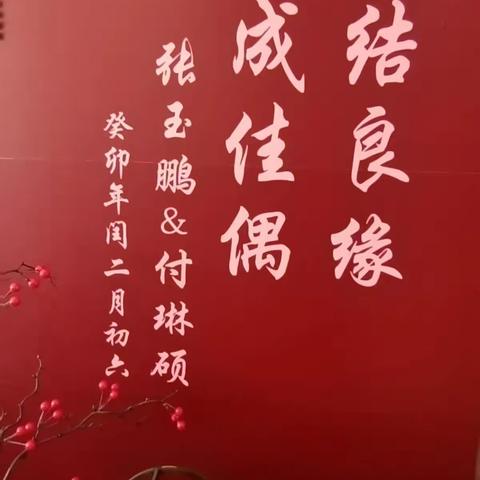 结良缘
成佳偶
张玉鹏&付琳硕
癸卯年闰二月初六